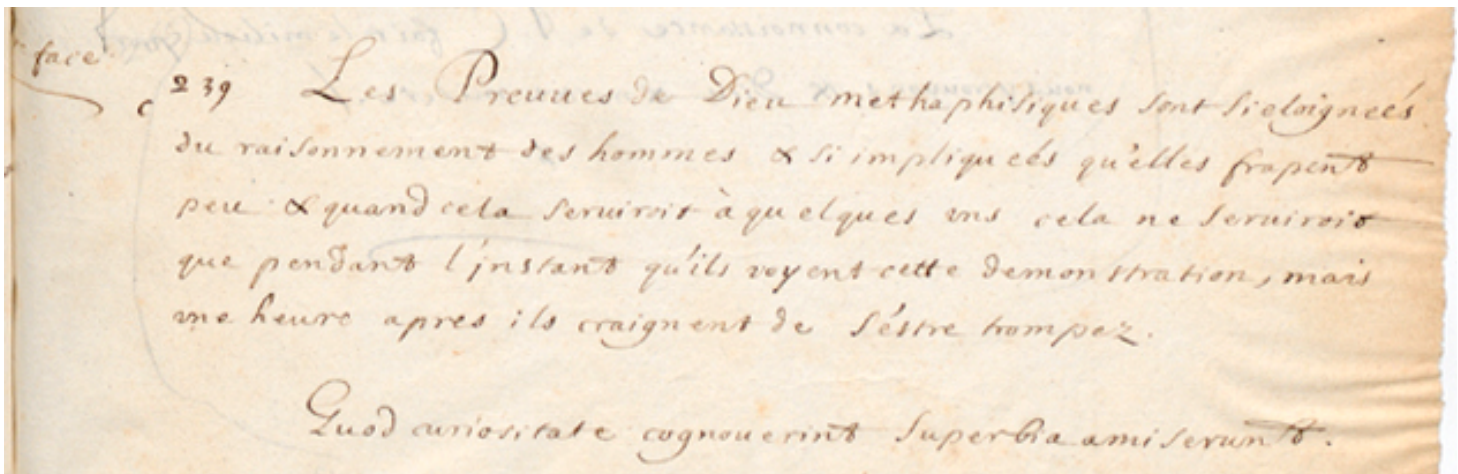 face
c 239 Les Preuues de Dieu methaphisiques sont si eloigneés
du raisonnement des hommes & si impliqueés qu'elles frapent
peu & quand cela seruiroit à quelques vns cela ne seruiroit
que pendant l'jnstant qu'ils voyent cette demonstration, mais
vne heure apres ils craignent de s'éstre trompez.
Quod curiositate cognouerint superbia amiserunt.